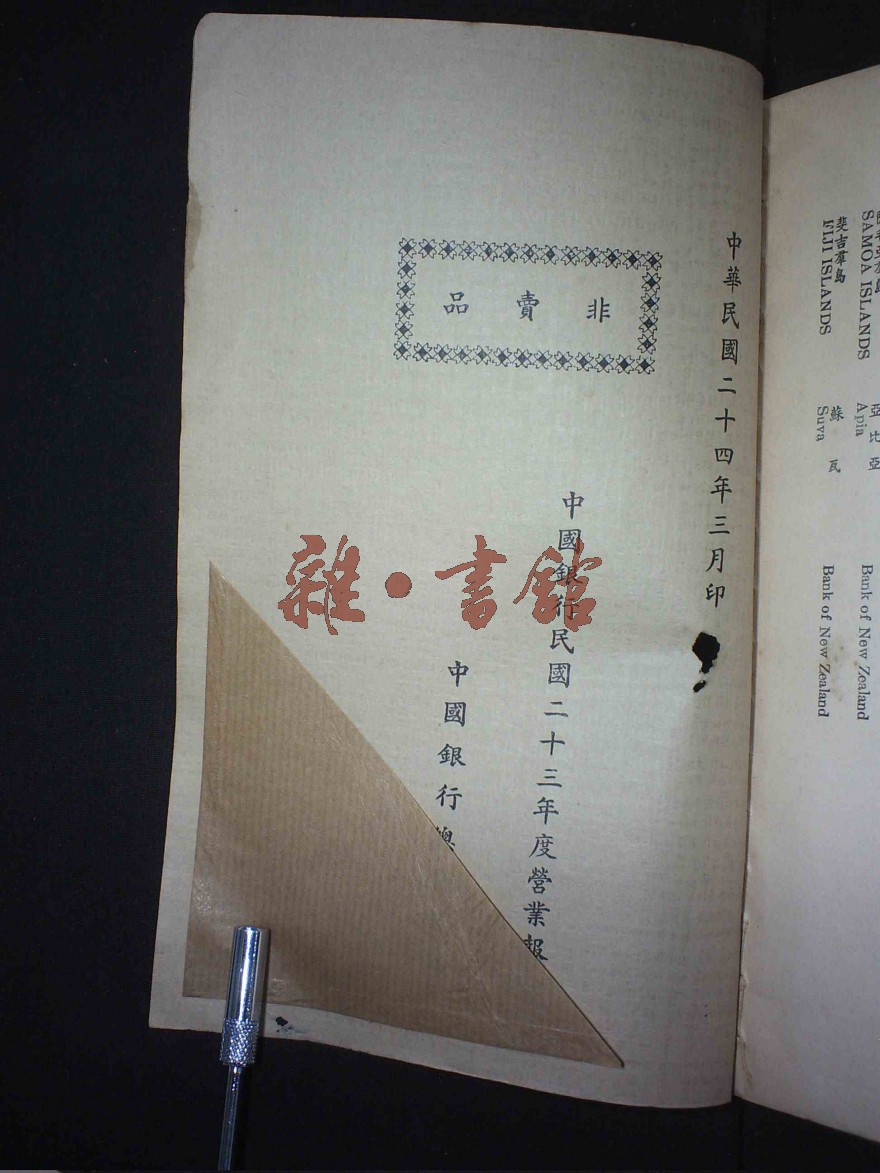 斐吉羣島
FIJI ISLANDS
SAMOA ISLANDS
蘇瓦
Suva
亞比亞
Apia
Bank of New Zealand
Bank of New Zealand
中華民國二十四年三月印
非賣品
中國銀行民國二十三年度營業報
中國銀行總
雜·書館